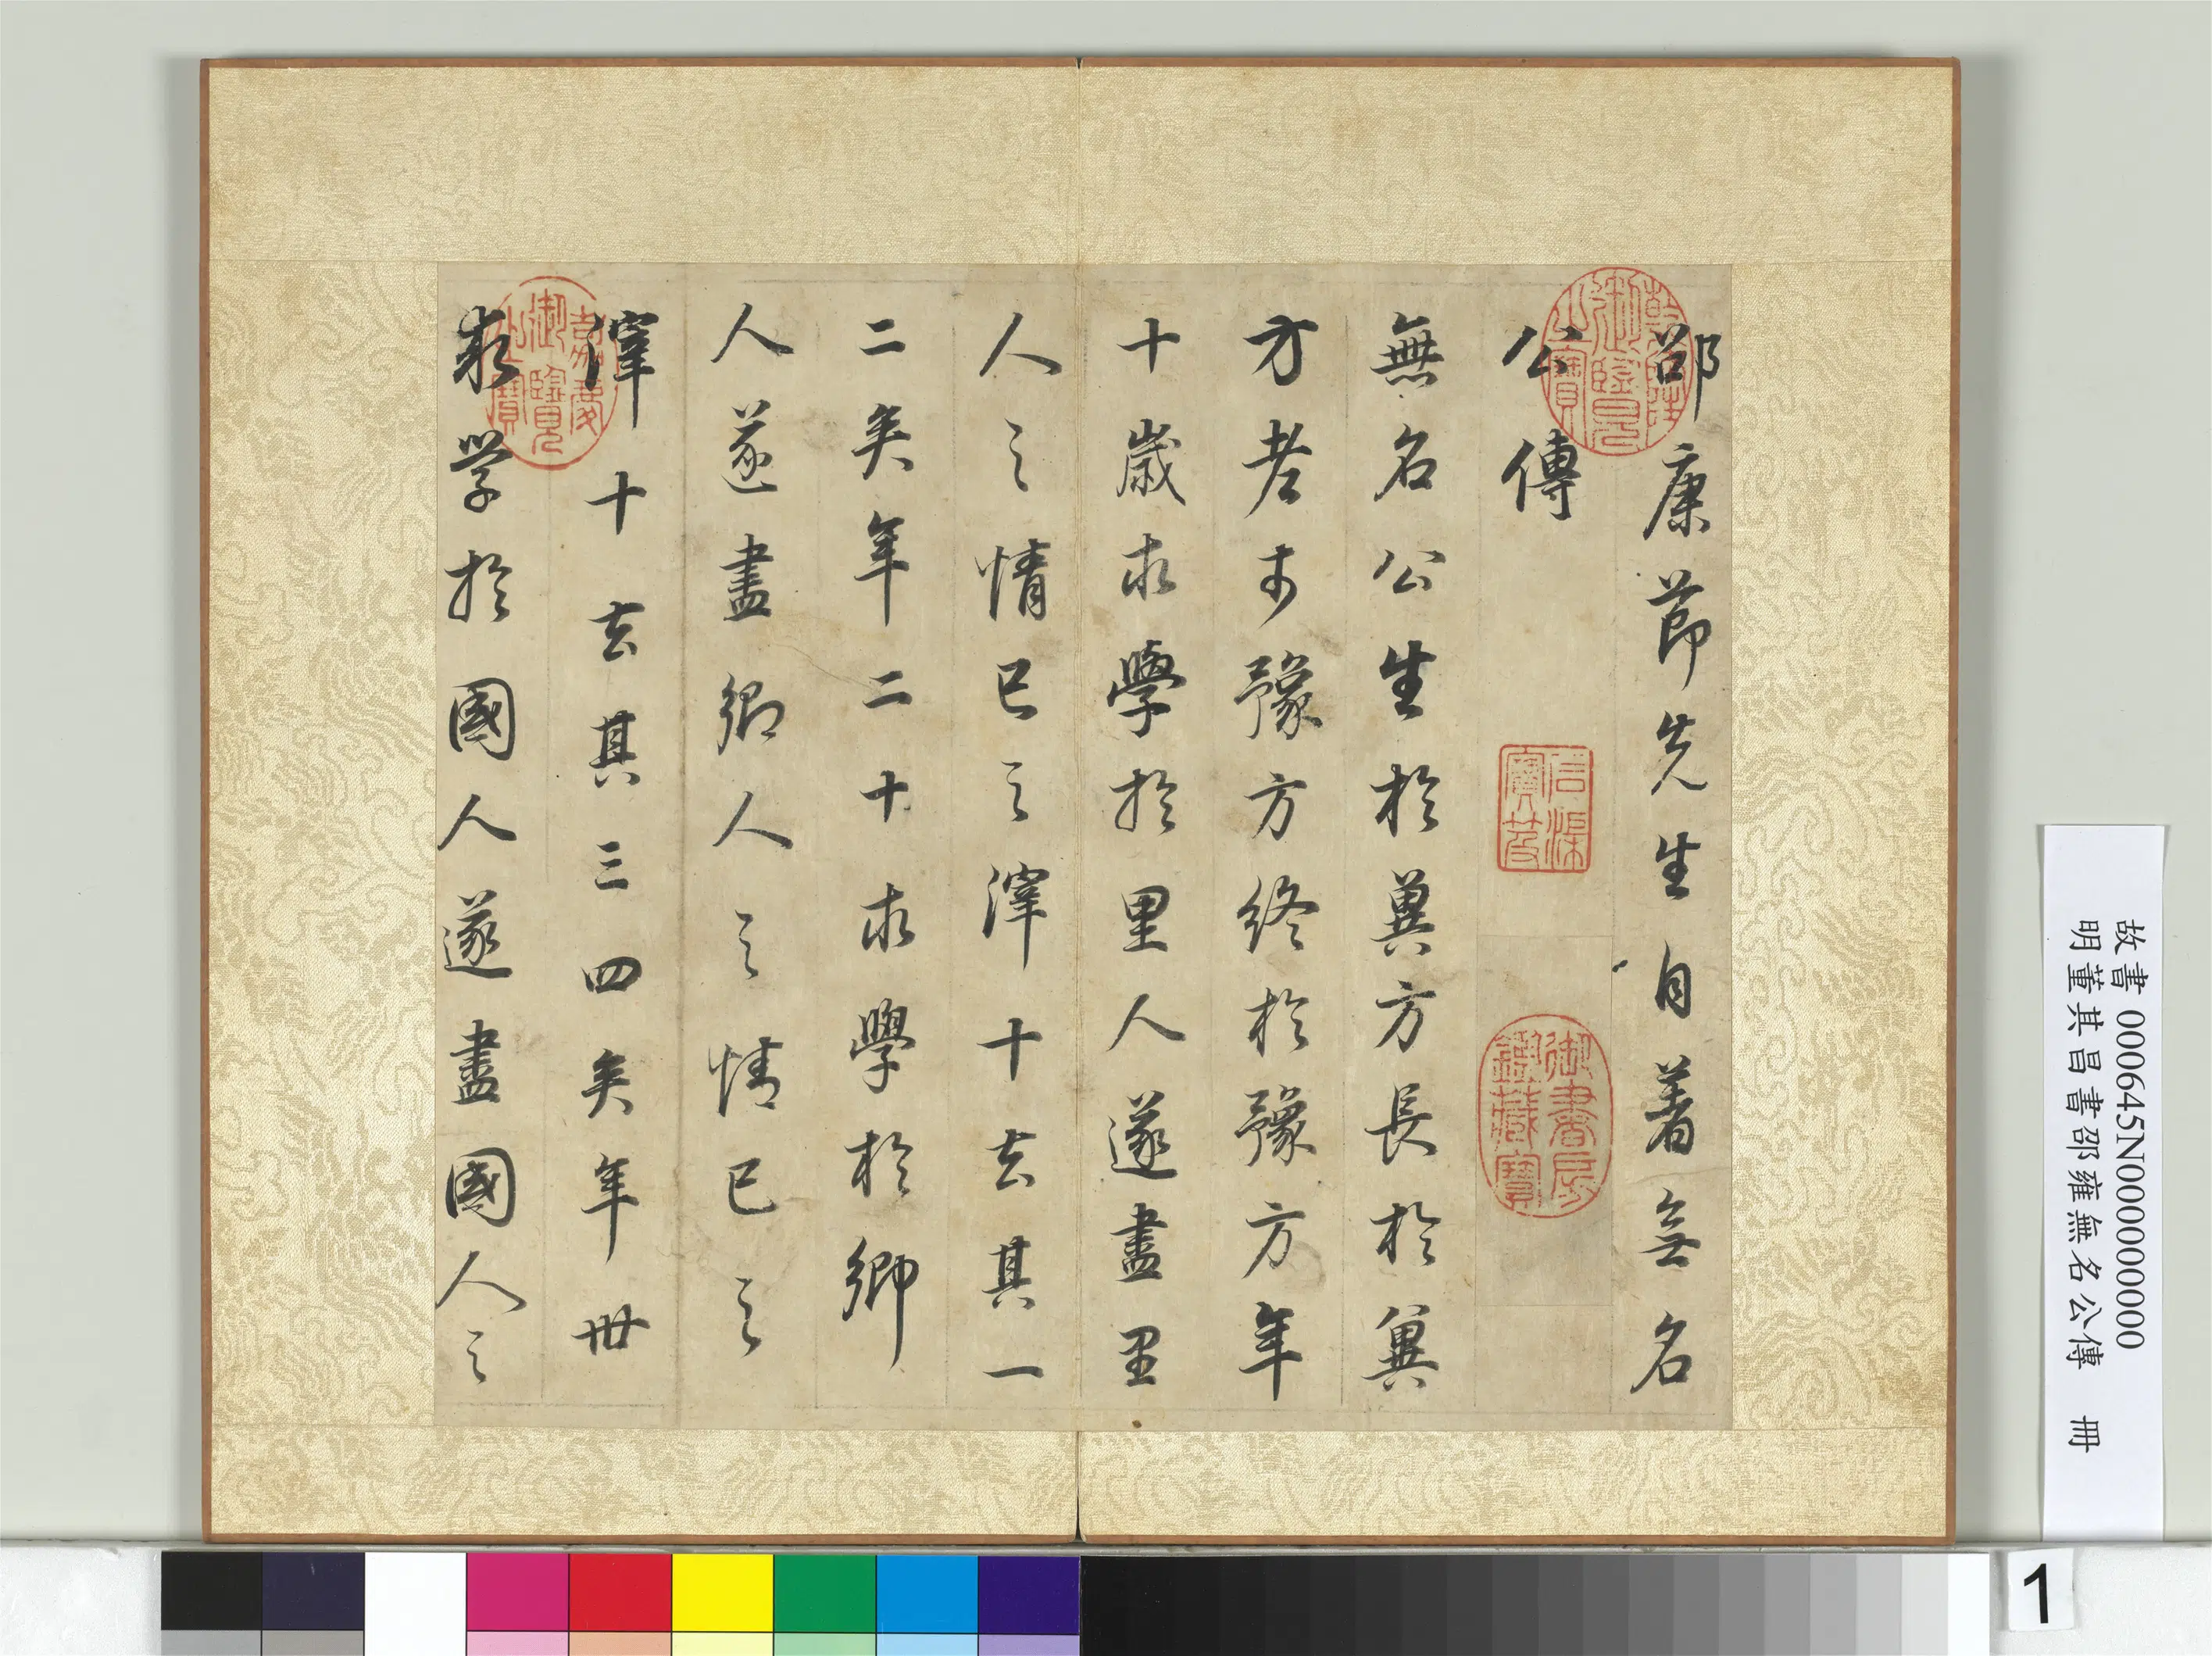 邵康節先生自著無名
公傳
無名公生於冀方長於冀
方老於豫方終於豫方年
十歲求學於里人遂盡里
人之情已之滓十去其一
二矣年二十求學於鄉
人遂盡鄉人之情已之
滓十去其三四矣年卅
求学於國人遂盡國人之
乾隆御覽之寶
嘉慶御覽之寶
御書房鑑藏寶
故書 000645N000000000
明董其昌書邵雍無名公傳 冊
1